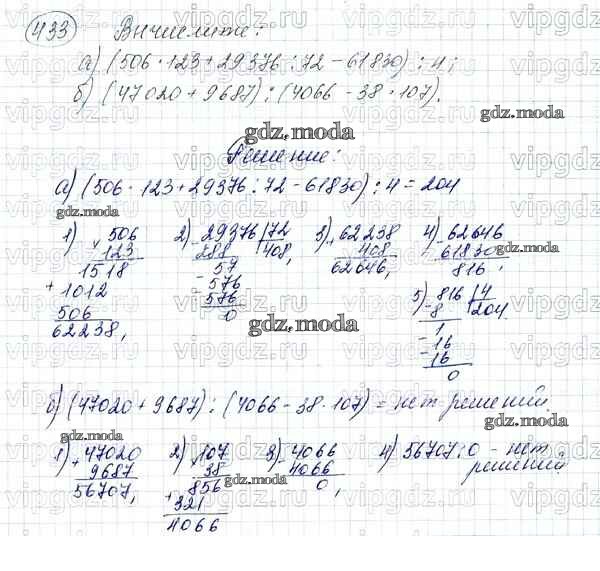 433 Вычислите:
а) (506 · 123 + 29376 : 72 - 61830) : 4;
б) (47020 + 9687) : (4066 - 38 · 107).
gdz.moda
Решение:
а) (506 · 123 + 29376 : 72 - 61830) : 4 = 204
1) × 506
123
1518
+ 1012
506
62238,
2) - 29376 | 72
288 408,
57
- 576
576
0
3) + 62238
408
62646,
4) - 62646
61830
816,
5) - 816 | 4
8 204
1
- 16
- 16
0
gdz.moda
б) (47020 + 9687) : (4066 - 38 · 107) = нет решений
1) + 47020
9687
56707,
2) × 107
38
856
+ 321
4066
3) - 4066
4066
0,
4) 56707 : 0 - нет
решений
gdz.moda